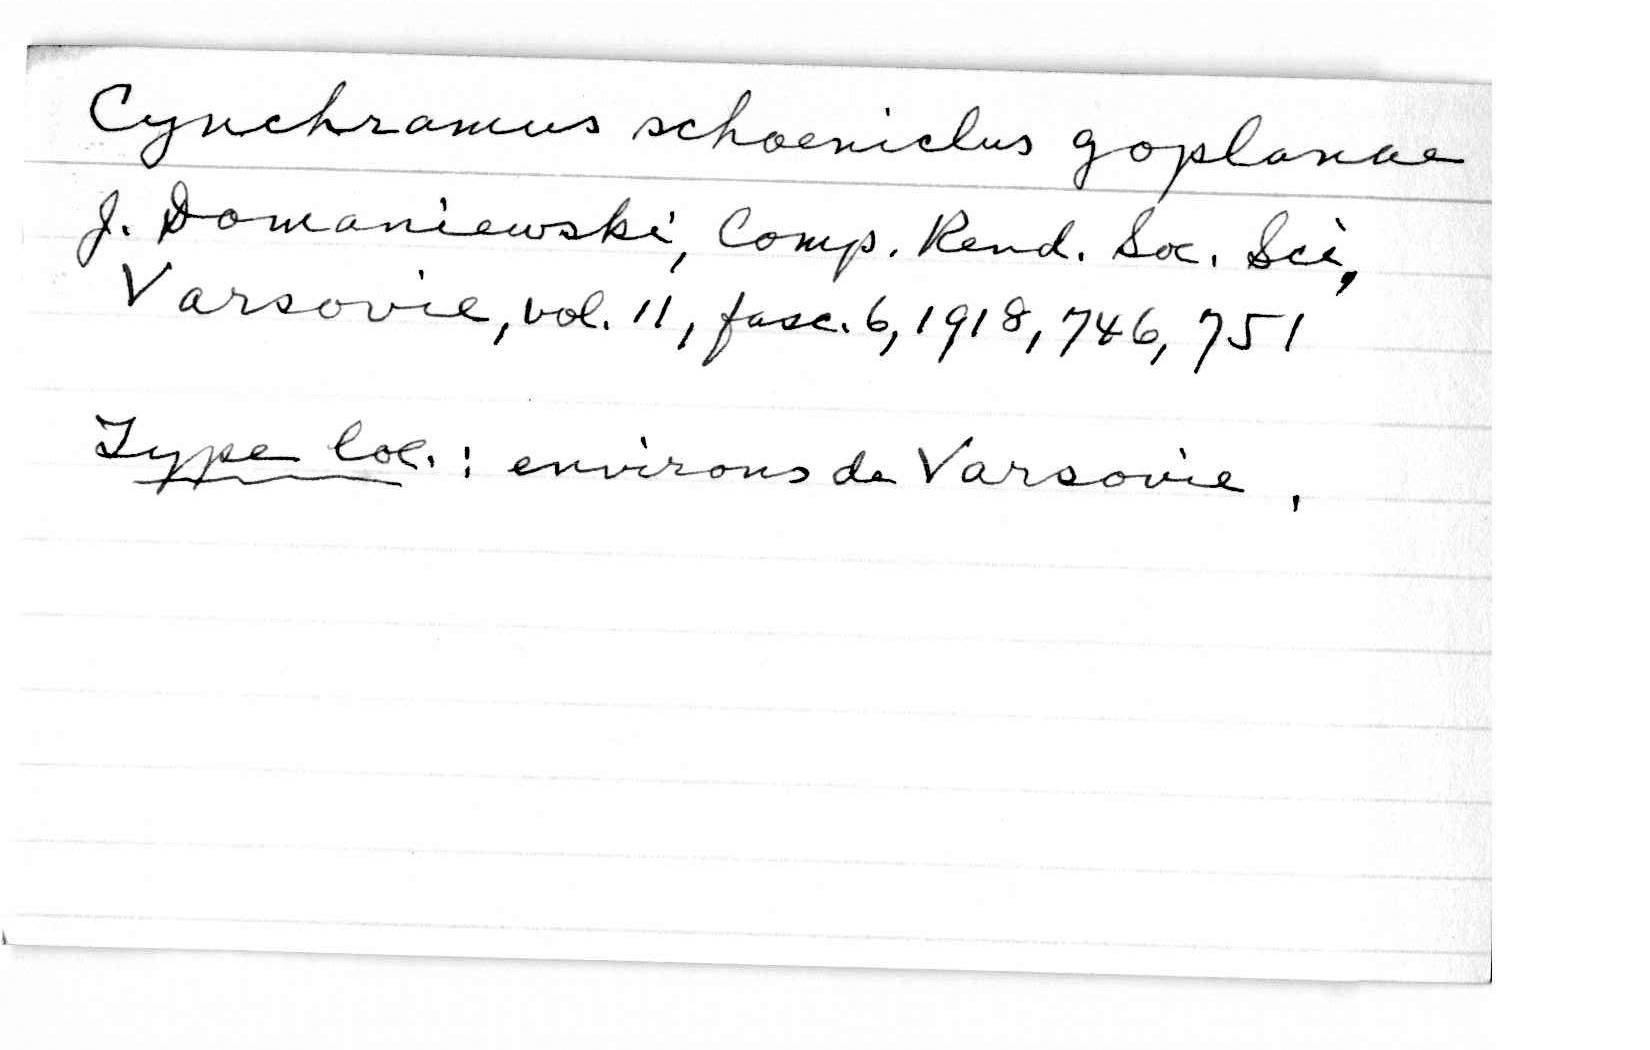 Cynchramus schoeniclus goplanae
J. Domaniewski, Comp. Rend. Soc. Sci,
Varsovie, vol. 11, fasc. 6, 1918, 746, 751
Type loc. : environs de Varsovie .